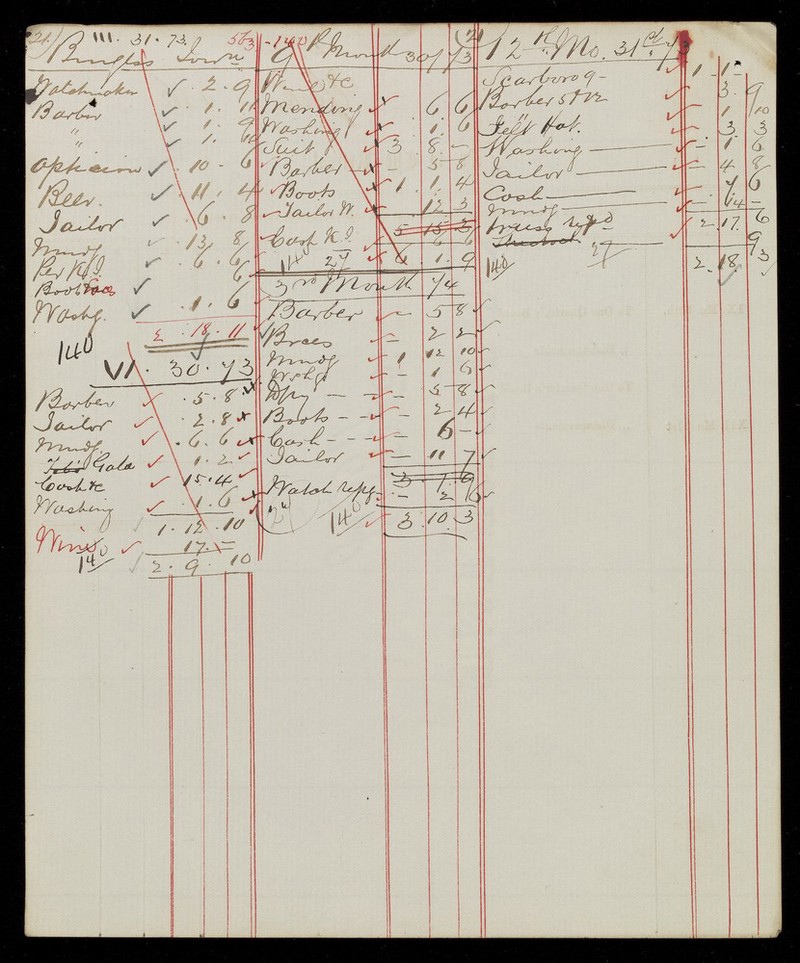 III. 31. 73. 563
Watchmaker 2. 9
Barber 1. 11
" 1. 9
" 1.
Optician 10. 6
Beer. 11. 4
Tailor 6. 8
Mndg 13. 8
Per K.I. 6. 6
6
Washg. 1. 6
140 2. 18. 11
VI. 30. 73
Barber 5. 8
Tailor 2. 8
Mndg 6. 6
Gala 1. 2
Cash &c 15. 4
Washing 1. 6
1. 12. 10
Wine 17. -
140 2. 9. 10
140 9 Month 30/73
Wine &c
Mending 6 6
Washing 1. 6
Suit 3 8 -
Barber - 5 8
Boots 1 1. 4
Tailor W. 12 3
5 15 3
Cash K.I. 6 6
140 27 6 1. 9
3rd Month 74
Barber - 5 8
Braces - 2 2
Mndg 1 12 10
Wshg - 1 6
- 5 - 8
Boots - - - 2 4
Cash - - - 6 -
Tailor - 11 7
3. 7. 9
Watch repg. - 2 6
27 140 3. 10 3
12th Mo. 31st /73
Scarboro 9 - 1 - 1 -
Barber 3. 9
" 1 10
Felt Hat. 3. 3
Washing - 1 6
Tailor - 4 8
Cash - 7 6
Mndg 14 -
2. 17. 6
27 9
140 2. 18. 3